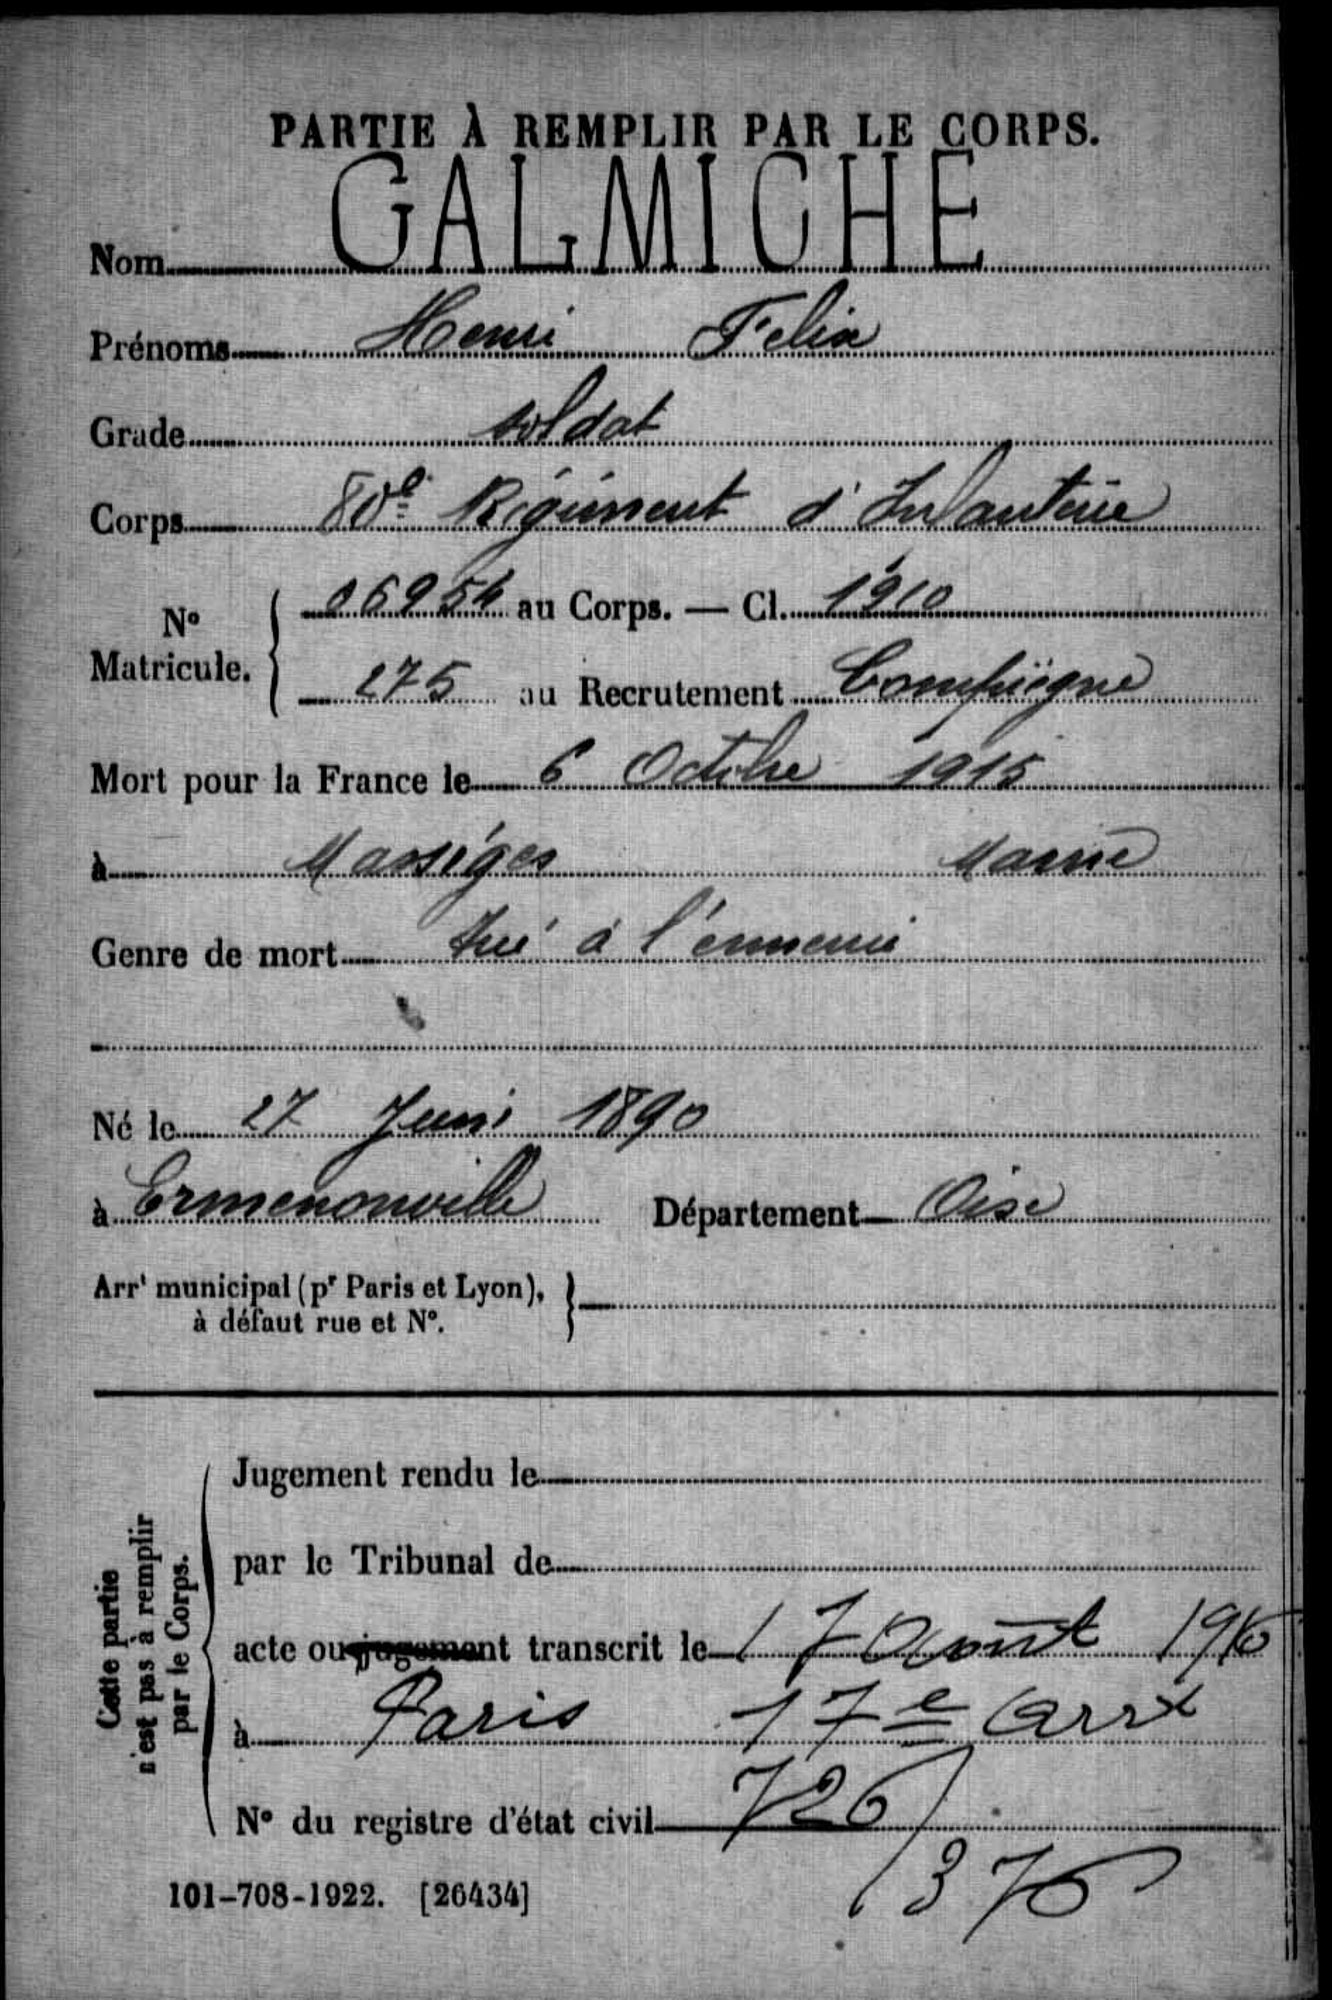 PARTIE À REMPLIR PAR LE CORPS.
Nom GALMICHE
Prénoms Henri Felix
Grade soldat
Corps 80e Régiment d'Infanterie
No Matricule. 06954 au Corps. — Cl. 1910
275 au Recrutement Compiègne
Mort pour la France le 6 Octobre 1915
à Massiges Marne
Genre de mort tué à l'ennemi
Né le 27 Juin 1890
à Ermenonville Département Oise
Arrt municipal (pr Paris et Lyon),
à défaut rue et No.
Cette partie
n'est pas à remplir
par le Corps.
Jugement rendu le
par le Tribunal de
acte ou jugement transcrit le 17 Août 1916
à Paris 17e Arrt
No du registre d'état civil 726/
376
101-708-1922. [26434]